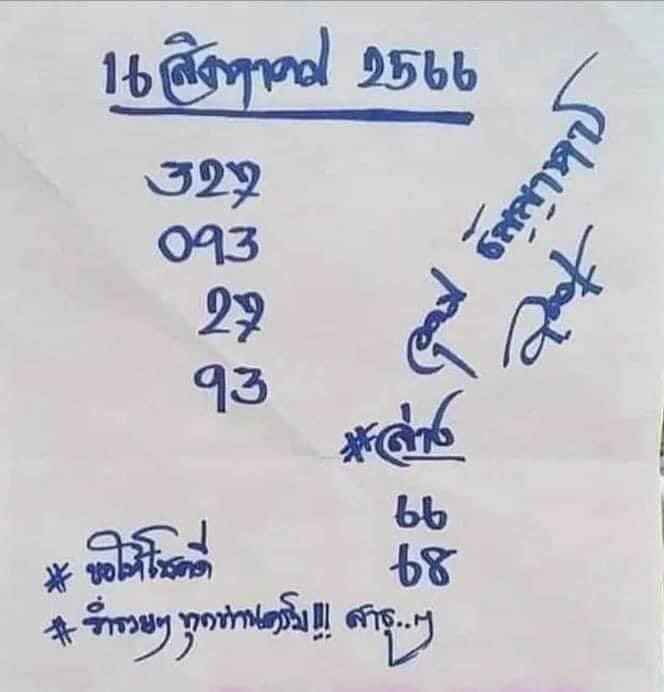 16 สิงหาคม 2566
327
093
27
93
*ล่าง
66
68
* ขอให้โชคดี
* ร่ำรวยๆ ทุกท่านครับ!!! สาธุ..ๆ